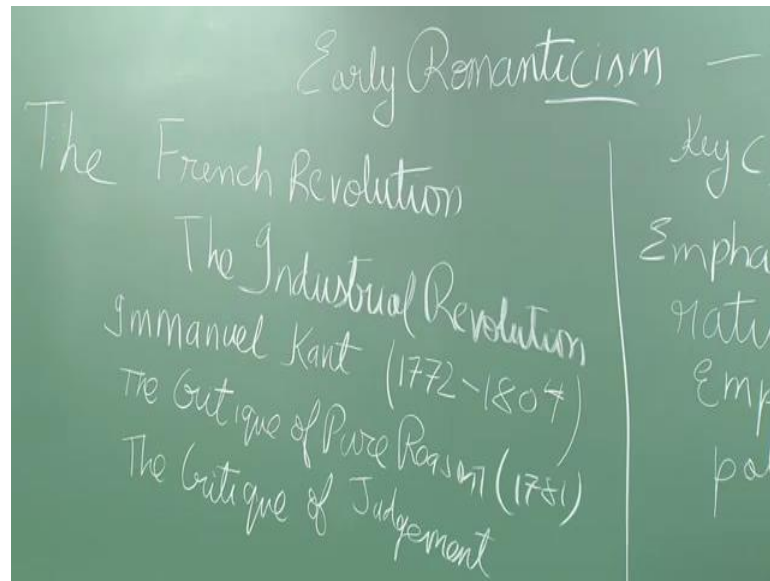 Early Romanticism —
The French Revolution
The Industrial Revolution
Immanuel Kant (1772-1804)
The Critique of Pure Reason (1781)
The Critique of Judgement
Key C
Empha
natu
Emp